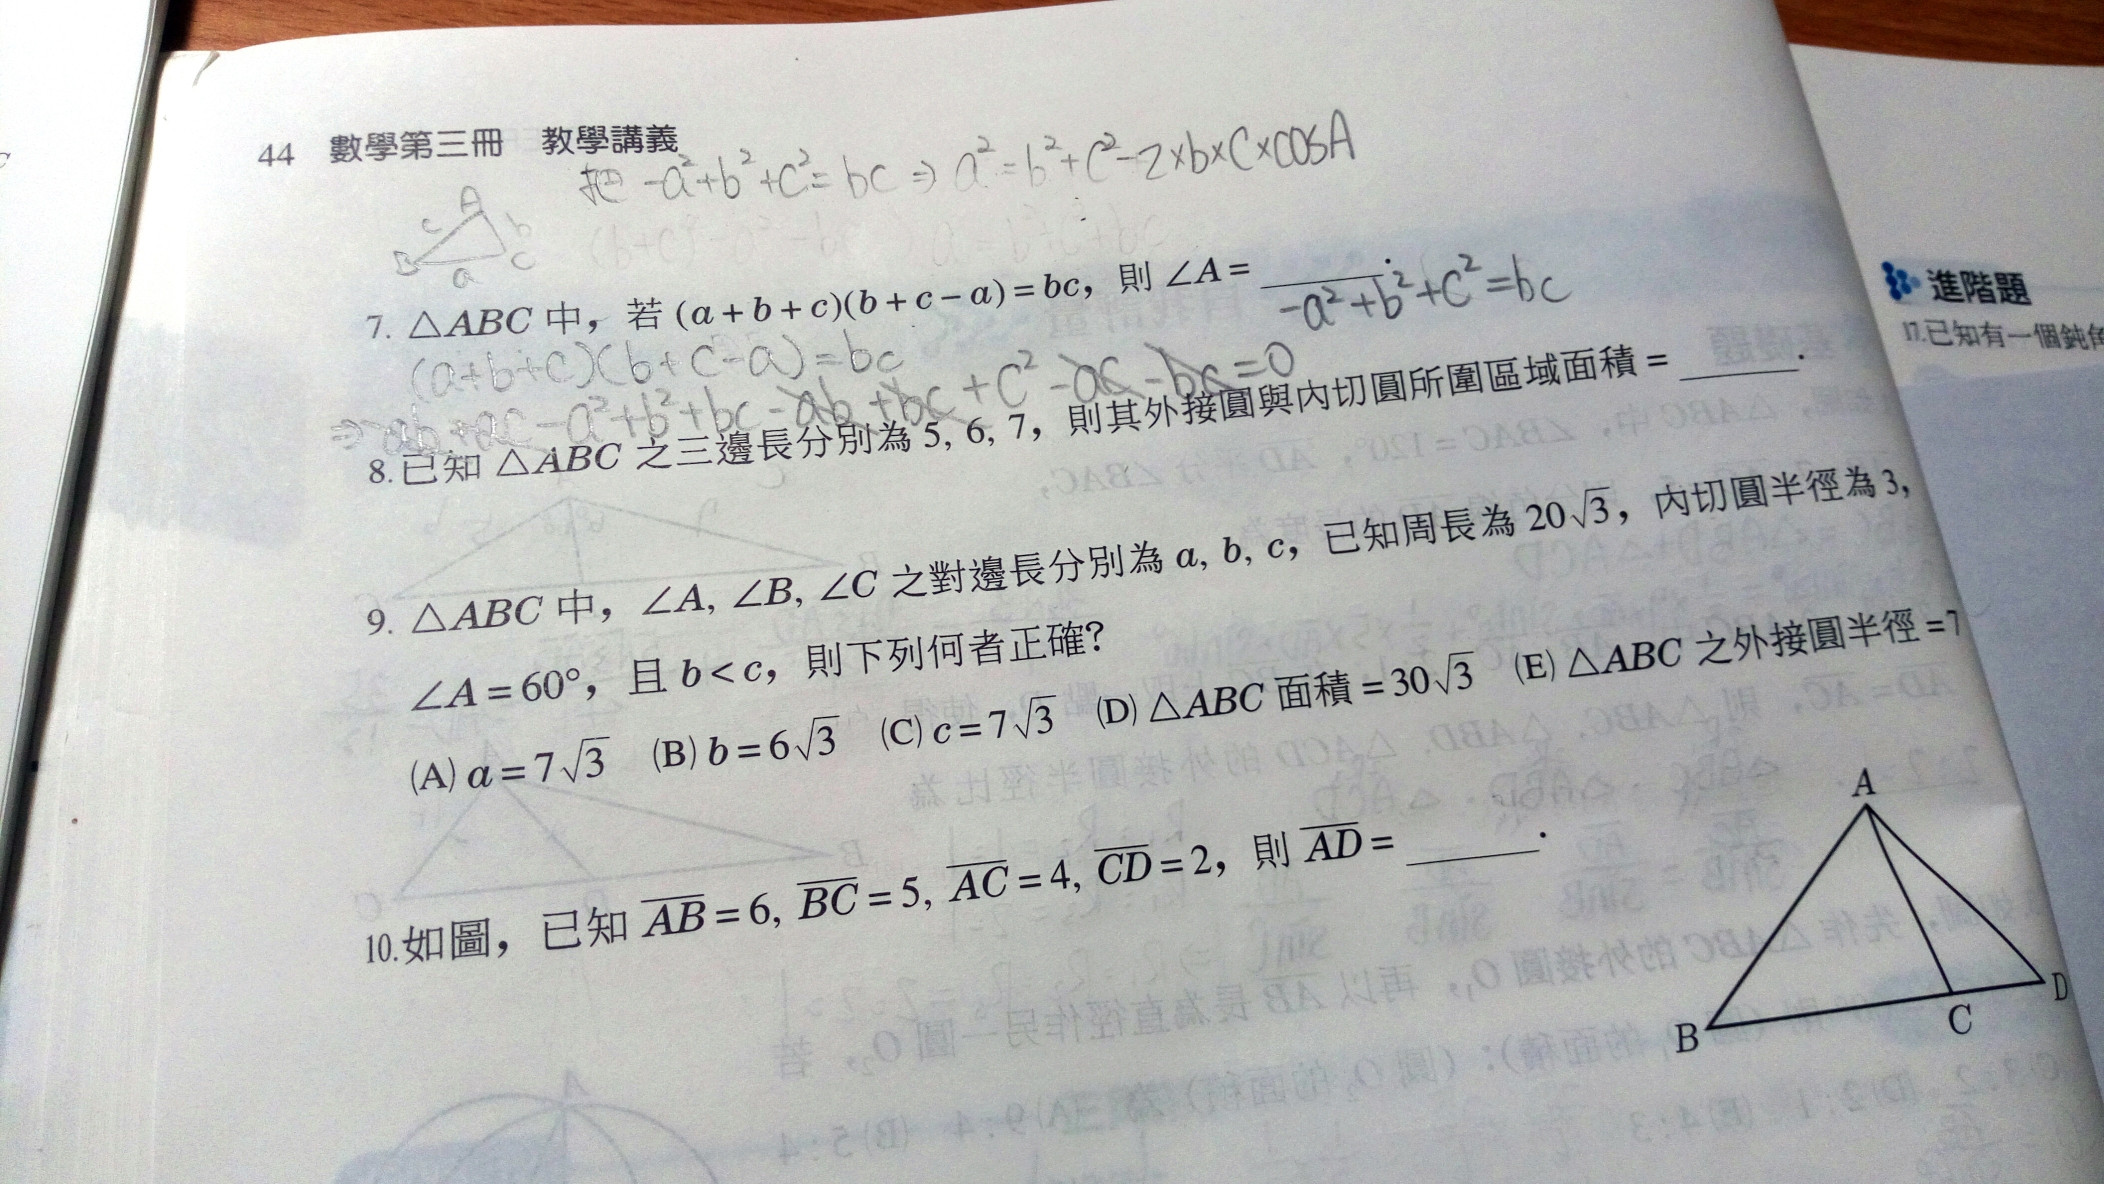 44 數學第三冊 教學講義
把 -a²+b²+c²=bc ⇒ a²=b²+c²-2×b×c×cosA
A
c b
B a C
7. △ABC 中，若 (a+b+c)(b+c-a)=bc，則 ∠A= ______.
-a²+b²+c²=bc
(a+b+c)(b+c-a)=bc
⇒ ab+ac-a²+b²+bc-ab+bc+c²-ac-bc=0
8.已知 △ABC 之三邊長分別為 5, 6, 7，則其外接圓與內切圓所圍區域面積 = ______.
9. △ABC 中，∠A, ∠B, ∠C 之對邊長分別為 a, b, c，已知周長為 20√3，內切圓半徑為 3,
∠A=60°，且 b<c，則下列何者正確?
(A) a=7√3 (B) b=6√3 (C) c=7√3 (D) △ABC 面積=30√3 (E) △ABC 之外接圓半徑=7
10.如圖，已知 AB=6, BC=5, AC=4, CD=2，則 AD= ______.
A
B C D
進階題
17.已知有一個鈍角